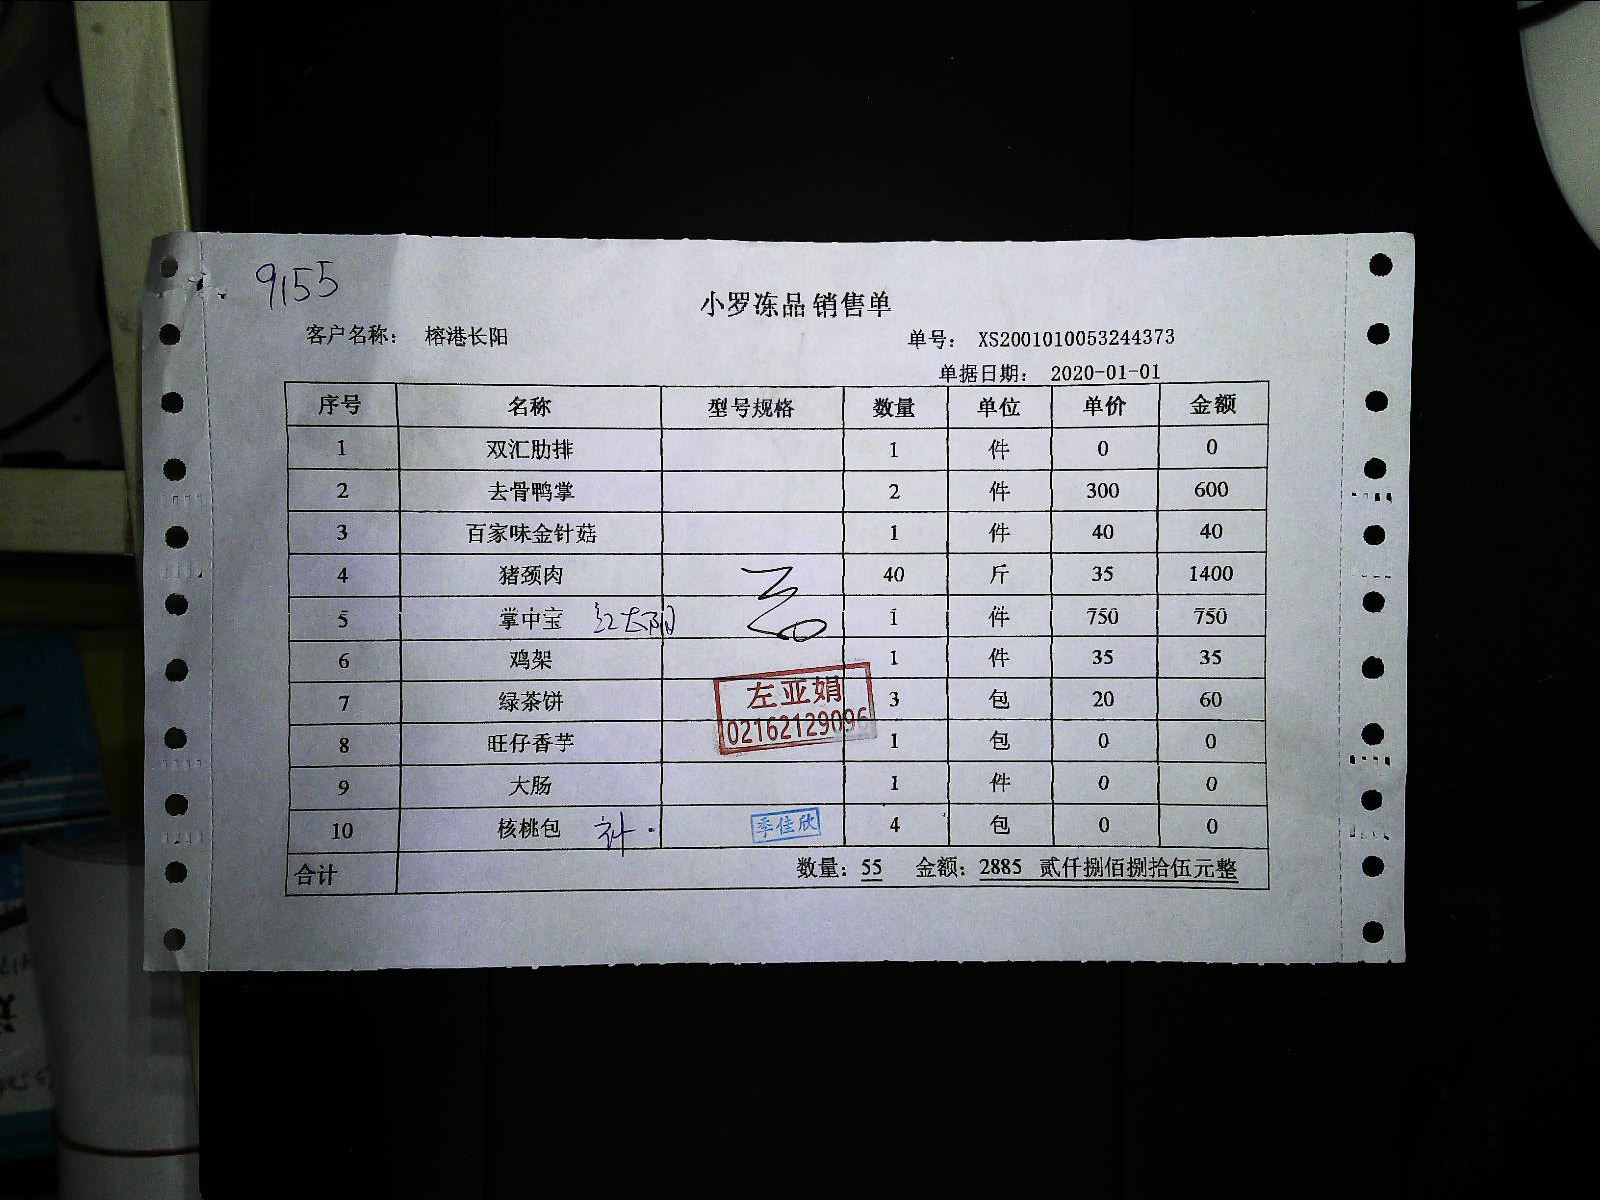 9155
小罗冻品 销售单
客户名称： 榕港长阳 单号： XS2001010053244373
单据日期： 2020-01-01
序号 名称 型号规格 数量 单位 单价 金额
1 双汇肋排 1 件 0 0
2 去骨鸭掌 2 件 300 600
3 百家味金针菇 1 件 40 40
4 猪颈肉 40 斤 35 1400
5 掌中宝 红太阳 1 件 750 750
6 鸡架 1 件 35 35
7 绿茶饼 3 包 20 60
左亚娟
02162129096
8 旺仔香芋 1 包 0 0
9 大肠 1 件 0 0
10 核桃包 补. 季佳欣 4 包 0 0
合计 数量：55 金额：2885 贰仟捌佰捌拾伍元整